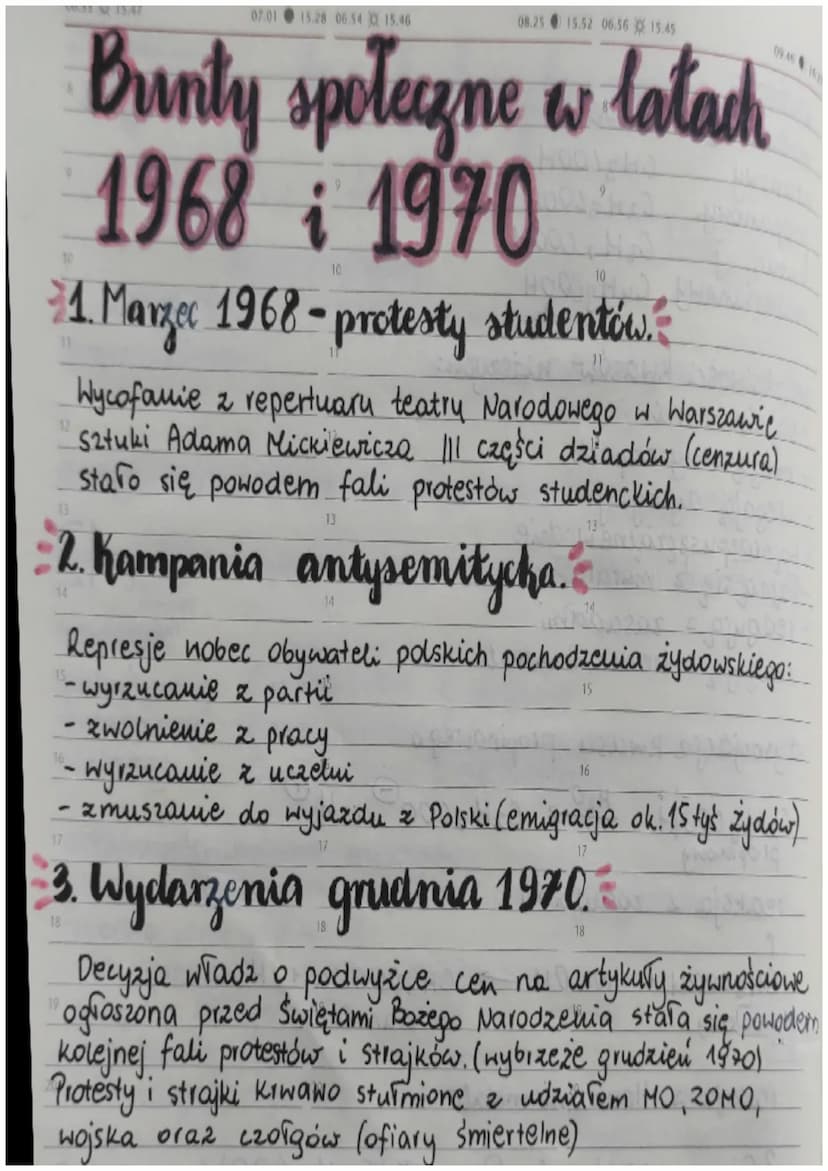 07.01 15.28 06.54 15.46 08.25 15.52 06.56 15.45
Bunty społeczne w latach
1968 i 1970
1. Marzec 1968 - protesty studentów.
Wycofanie z repertuaru teatru Narodowego w Warszawie
sztuki Adama Mickiewicza III części dziadów (cenzura)
stało się powodem fali protestów studenckich.
2. Kampania antysemitycka.
Represje wobec obywateli polskich pochodzenia żydowskiego:
- wyrzucanie z partii
- zwolnienie z pracy
- wyrzucanie z uczelni
- zmuszanie do wyjazdu z Polski (emigracja ok. 15 tyś żydów)
3. Wydarzenia grudnia 1970.
Decyzja władz o podwyżce cen na artykuły żywnościowe
ogłoszona przed Świętami Bożego Narodzenia stała się powodem
kolejnej fali protestów i strajków. (wybrzeże grudzień 1970)
Protesty i strajki krwawo stułmione z udziałem MO, ZOMO,
wojska oraz czołgów (ofiary śmiertelne)